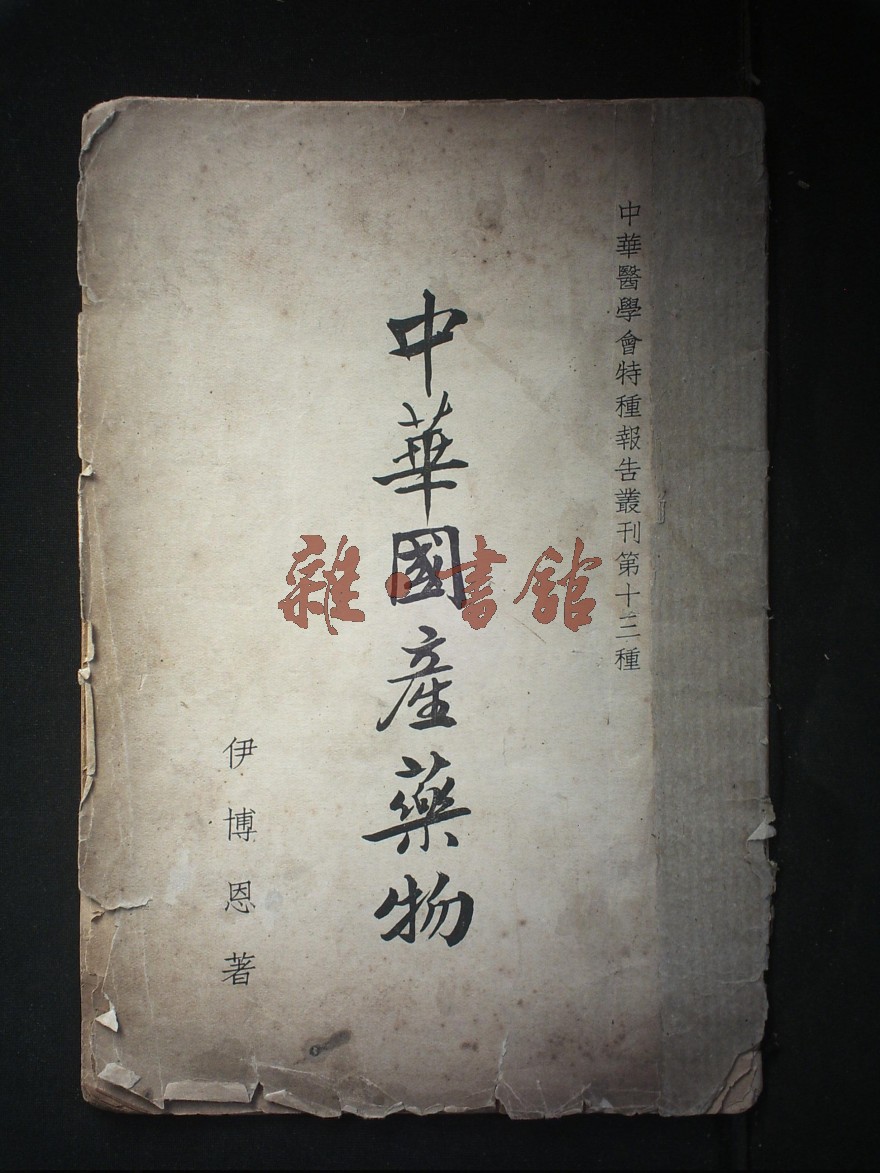 中華醫學會特種報告叢刊第十三種
中華國產藥物
伊博恩著
雜·書館